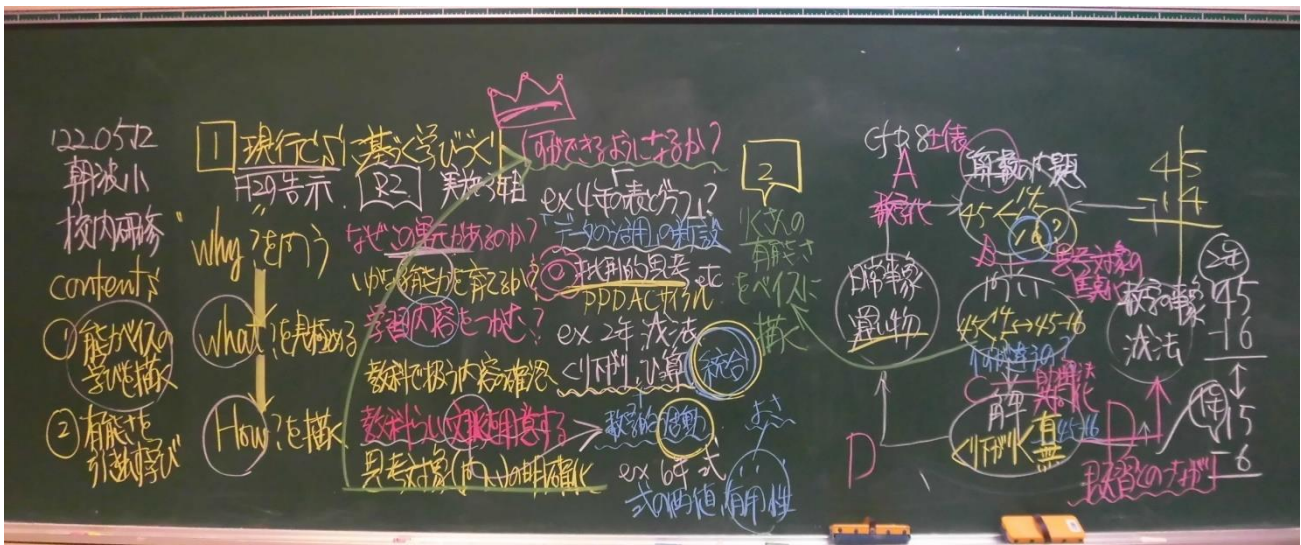 '22.05.12
朝波小
校内研修
contents
① 能力ベイスの
学びを描く
② 有能さを
引き出す学び
1 現行CSに基づく学びづくり
H29告示 R2 実施
"why"?を問う
what?を見極める
How?を描く
なぜこの単元があるのか?
いかなる能力を育てるか?
学習内容をつかむ?
教科で扱う内容の確認
教科らしい文脈を用意する
思考対象(問い)の明確化
何ができるようになるか?
ex 4年の表とグラフ?
「データの活用」の新設
批判的思考 etc
PPDACサイクル
ex 2年 減法
くり下がり ひ算 統合
数学的活動
ex 6年 式
式の価値 有用性
よさ
2
有能さ
をベイスに
描く
cf P.8 土俵
A
数学化
日常事象
買い物
算数の問題
45 14
16
B
思考対象の
問い
45-14↔45-16
何が違うの?
C
解
くり下がり 有 無
45-16
D
D
数学の事象
減法
既習とのつながり
45
-14
2年
45
-16
1年
15
-6